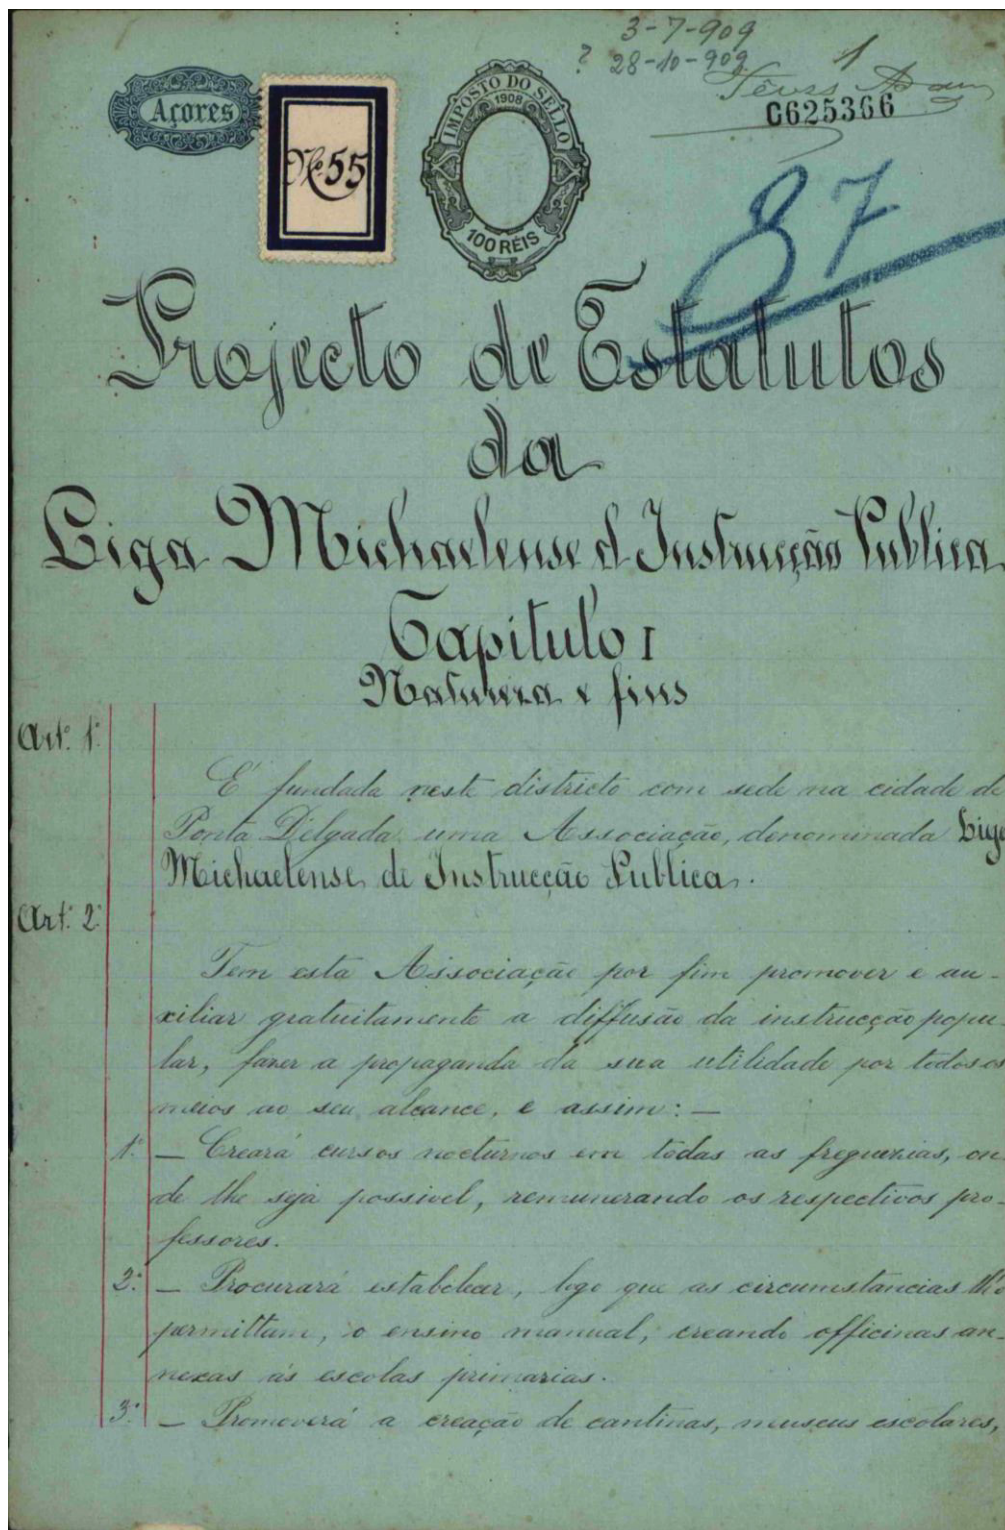 3-7-909
? 28-10-909
1
Açores
Nº 55
IMPOSTO DO SELLO
1908
100 RÉIS
C625366
87
Projecto de Estatutos
da
Liga Michaelense d Instrucção Publica
Capitulo I
Natureza e fins
Artº 1º
É fundada neste districto com sede na cidade de
Ponta Delgada uma Associação, denominada Liga
Michaelense de Instrucção Publica.
Artº 2º
Tem esta Associação por fim promover e au-
xiliar gratuitamente a diffusão da instrucção popu-
lar, fazer a propaganda da sua utilidade por todos os
meios ao seu alcance, e assim: —
1º — Creará cursos nocturnos em todas as freguezias, on
de lhe seja possivel, remunerando os respectivos pro-
fessores.
2º — Procurará estabelecer, logo que as circumstancias lho
permittam, o ensino manual, creando officinas an-
nexas ás escolas primarias.
3º — Promoverá a creação de cantinas, museus escolares,